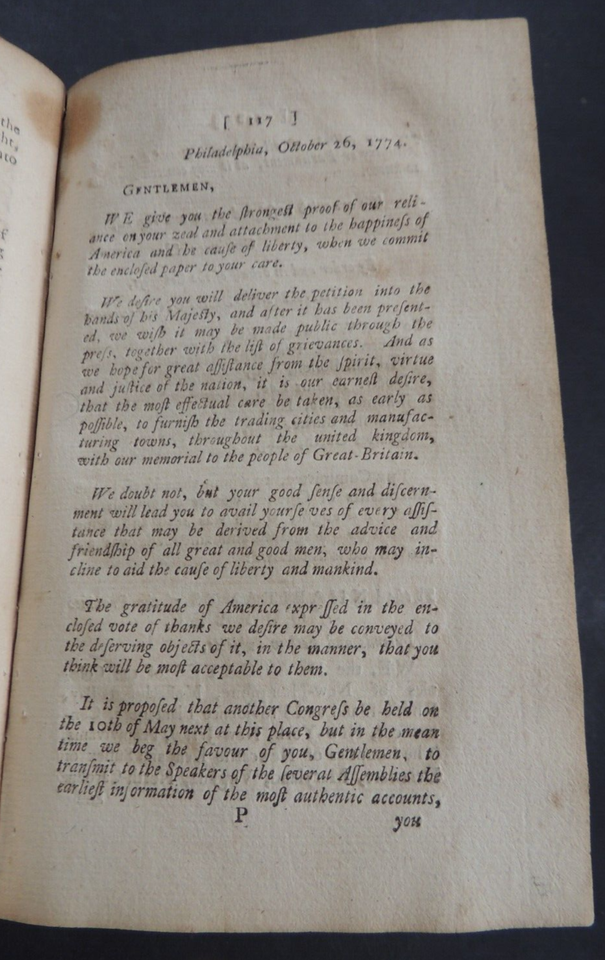 the
ht,
nto
f
[ 117 ]
Philadelphia, October 26, 1774.
GENTLEMEN,
WE give you the ſtrongeſt proof of our reli-
ance on your zeal and attachment to the happineſs of
America and he cauſe of liberty, when we commit
the encloſed paper to your care.
We deſire you will deliver the petition into the
hands of his Majeſty, and after it has been preſent-
ed, we wiſh it may be made public through the
preſs, together with the liſt of grievances. And as
we hope for great aſſiſtance from the ſpirit, virtue
and juſtice of the nation, it is our earneſt deſire,
that the moſt effectual care be taken, as early as
poſſible, to furniſh the trading cities and manufac-
turing towns, throughout the united kingdom,
with our memorial to the people of Great-Britain.
We doubt not, but your good ſenſe and diſcern-
ment will lead you to avail yourſe ves of every aſſiſ-
tance that may be derived from the advice and
friendſhip of all great and good men, who may in-
cline to aid the cauſe of liberty and mankind.
The gratitude of America expr ſſed in the en-
cloſed vote of thanks we deſire may be conveyed to
the deſerving objects of it, in the manner, that you
think will be moſt acceptable to them.
It is propoſed that another Congreſs be held on
the 10th of May next at this place, but in the mean
time we beg the favour of you, Gentlemen, to
tranſmit to the Speakers of the ſeveral Aſſemblies the
earlieſt information of the moſt authentic accounts,
P
you